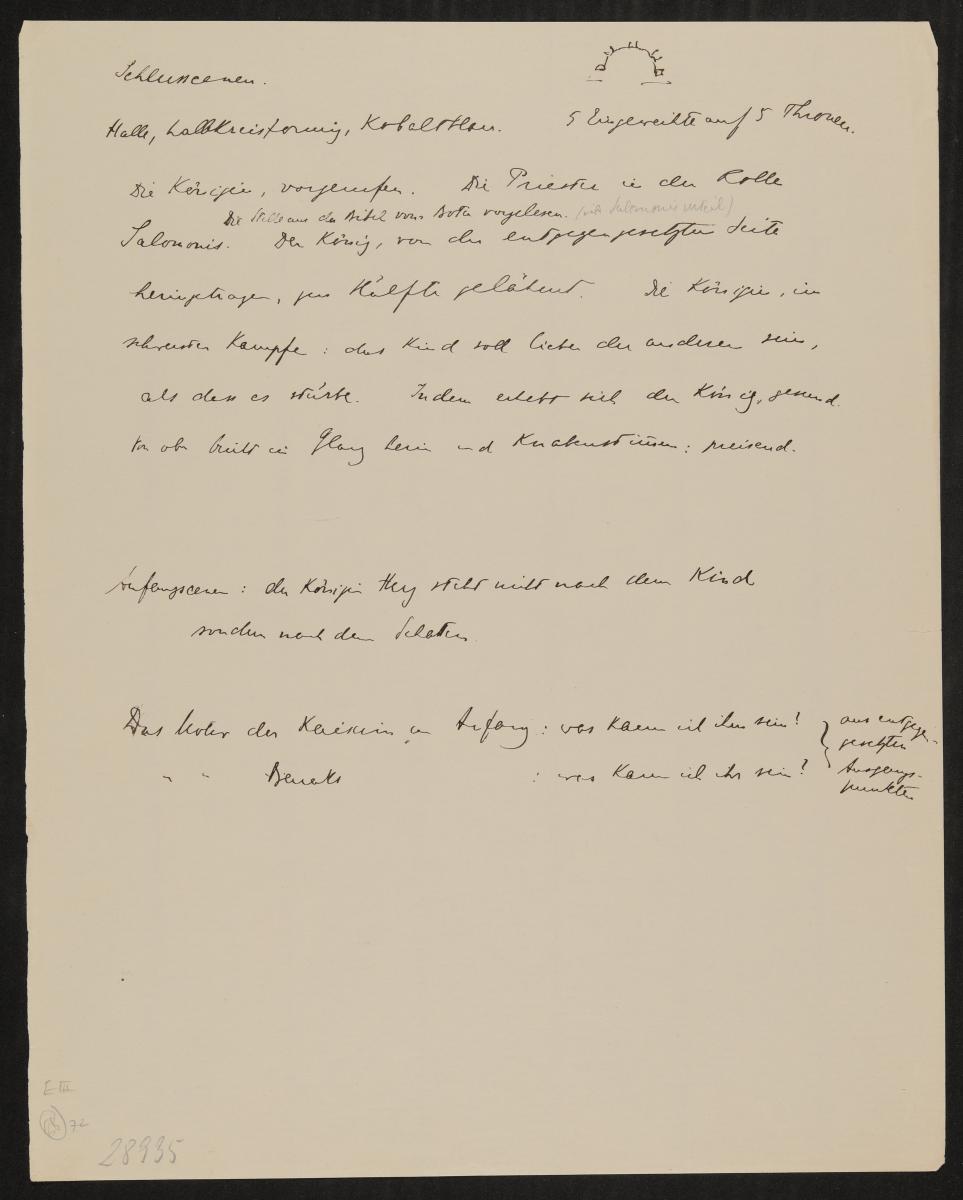 Schlussscenen.
Halle, halbkreisförmig, Kobaltblau. 5 Eingeweihte auf 5 Thronen.
Die Königin, vorgerufen. Die Priester in der Rolle
Die Stelle aus der Bibel vom Boten vorgelesen. (mit Salomonis urteil)
Salomonis. Der König, von der entgegengesetzten Seite
hereingetragen, zur Hälfte gelähmt. Die Königin, im
schwersten Kampfe: das Kind soll lieber der anderen sein,
als dass es stürbe. Indem erhebt sich der König, gesund.
Von oben bricht ein Glanz herein und Knabenstimmen: preisend.
Anfangsscenen: der Königin Herz steht nicht nach dem Kind
sondern nach dem Schatten.
Das Motiv der Kaiserin am Anfang: was kann ich ihm sein?
" " Baraks : was kann ich ihr sein?
} aus entgegen-
gesetzten
Ausgangs-
punkten
E III
18 72
28935